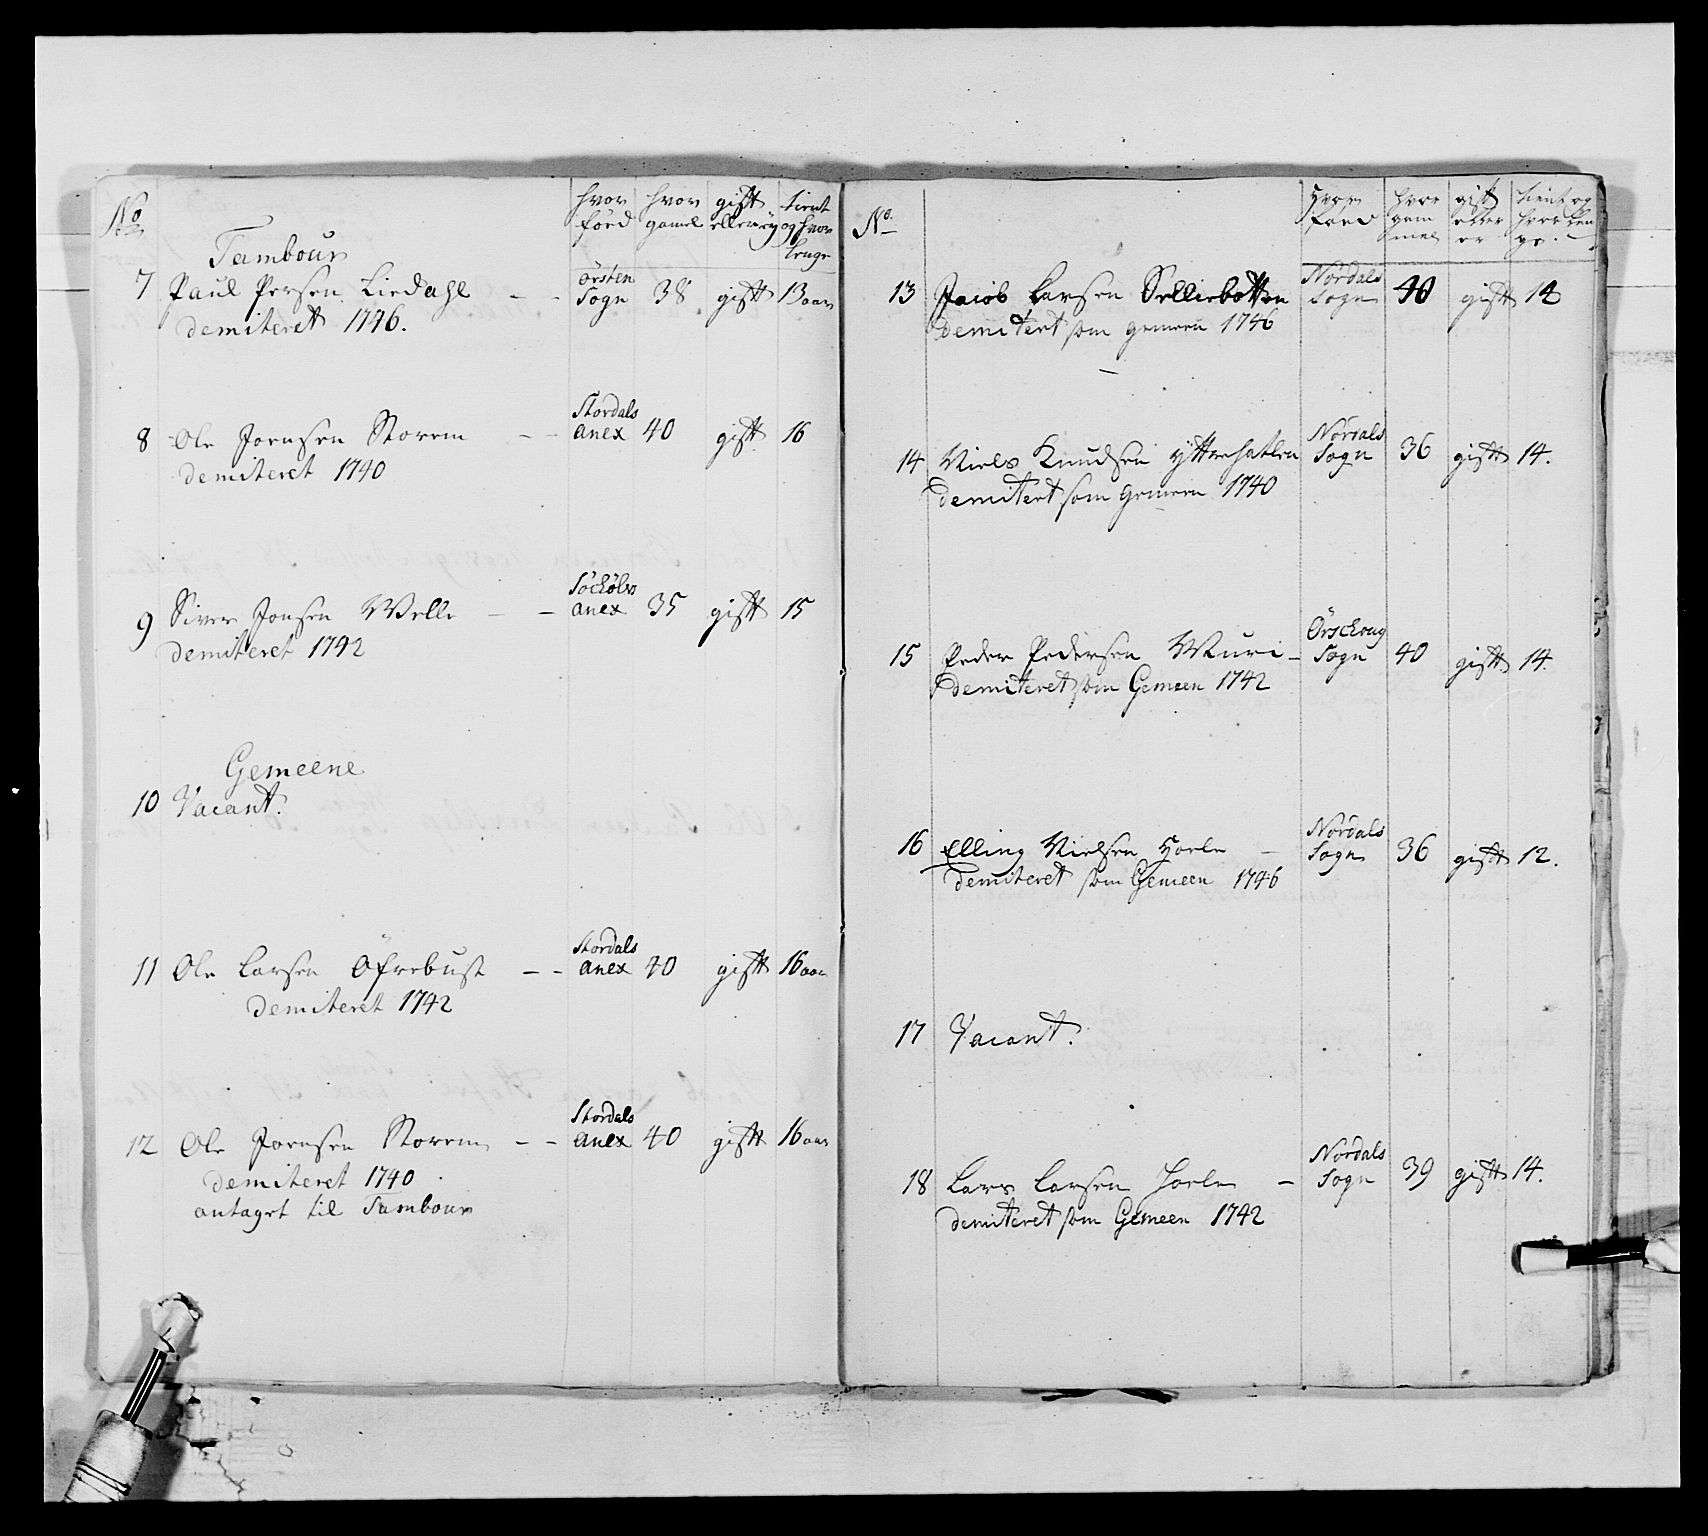 No
hvor
förd
hvor
gamel
gift
eller ey
tient
og hvor
lenge
Tambour
7 Paul Persen Liedahl - - örsten Sogn 38 gift 13 aar
demiteret 1746.
8 Ole Jornsen Storem - - Stordals anex 40 gift 16
demiteret 1740
9 Siver Jonsen Welle - - Söchölvs anex 35 gift 15
demiteret 1742
Gemeene
10 Vacant.
11 Ole Larsen Öfrebust - - Stordals anex 40 gift 16 aar
demiteret 1742
12 Ole Jornsen Storem - - Stordals anex 40 gift 16 aar
demiteret 1740
antaget til Tambour
No
Hvor
föed
hvor
gam
mel
gift
eller
ey
tient og
hvor len
ge.
13 Jacob Larsen Selliebotten Nordals Sogn 40 gift 14
demitert som gemeen 1746
14 Niels Knudsen yttrehatlen Nordals Sogn 36 gift 14.
demitert som Gemeen 1740
15 Peder Pedersen Muri - Örschoug Sogn 40 gift 14.
demiteret som Gemeen 1742
16 Elling Nielsen Hoele - Nordals Sogn 36 gift 12.
demiteret som Gemeen 1746
17 Vacant.
18 Lars Larsen Hoele - Nordals Sogn 39 gift 14.
demiteret som Gemeen 1742